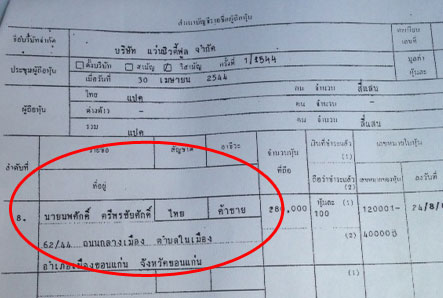 สำเนาบัญชีรายชื่อผู้ถือหุ้น
บริษัท แว่นบิวตี้ฟูล จำกัด
ประชุมผู้ถือหุ้น ตั้งบริษัท สามัญ วิสามัญ ครั้งที่ 1/2544
เมื่อวันที่ 30 เมษายน 2544
มูลค่า
หุ้นละ
ผู้ถือหุ้น
ไทย แปด คน จำนวน สี่แสน
ต่างด้าว - คน จำนวน -
รวม แปด คน จำนวน สี่แสน
ลำดับที่
รายชื่อ สัญชาติ อาชีพ
ที่อยู่
จำนวนหุ้น
ที่ถือ
เงินที่ชำระแล้ว
(1)
ถือว่าชำระแล้ว
(2)
เลขหมายใบหุ้น
เลขหมายของหุ้น ลงวันที่
8. นายนพศักดิ์ ศรีพรชัยศักดิ์ ไทย ค้าขาย 280,000 หุ้นละ (1) 120001- 24/8/
100
62/44 ถนนกลางเมือง ตำบลในเมือง (2) 400000
อำเภอเมืองขอนแก่น จังหวัดขอนแก่น
(1)